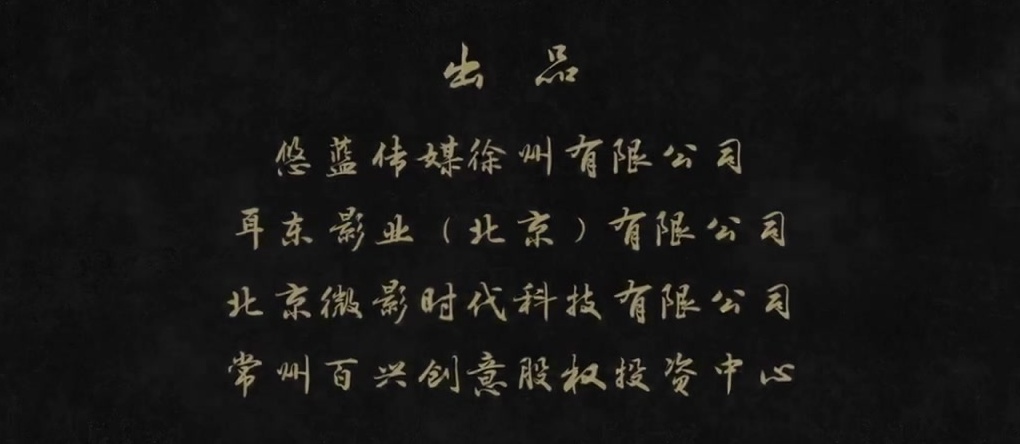 出品
悠蓝传媒徐州有限公司
耳东影业（北京）有限公司
北京微影时代科技有限公司
常州百兴创意股权投资中心